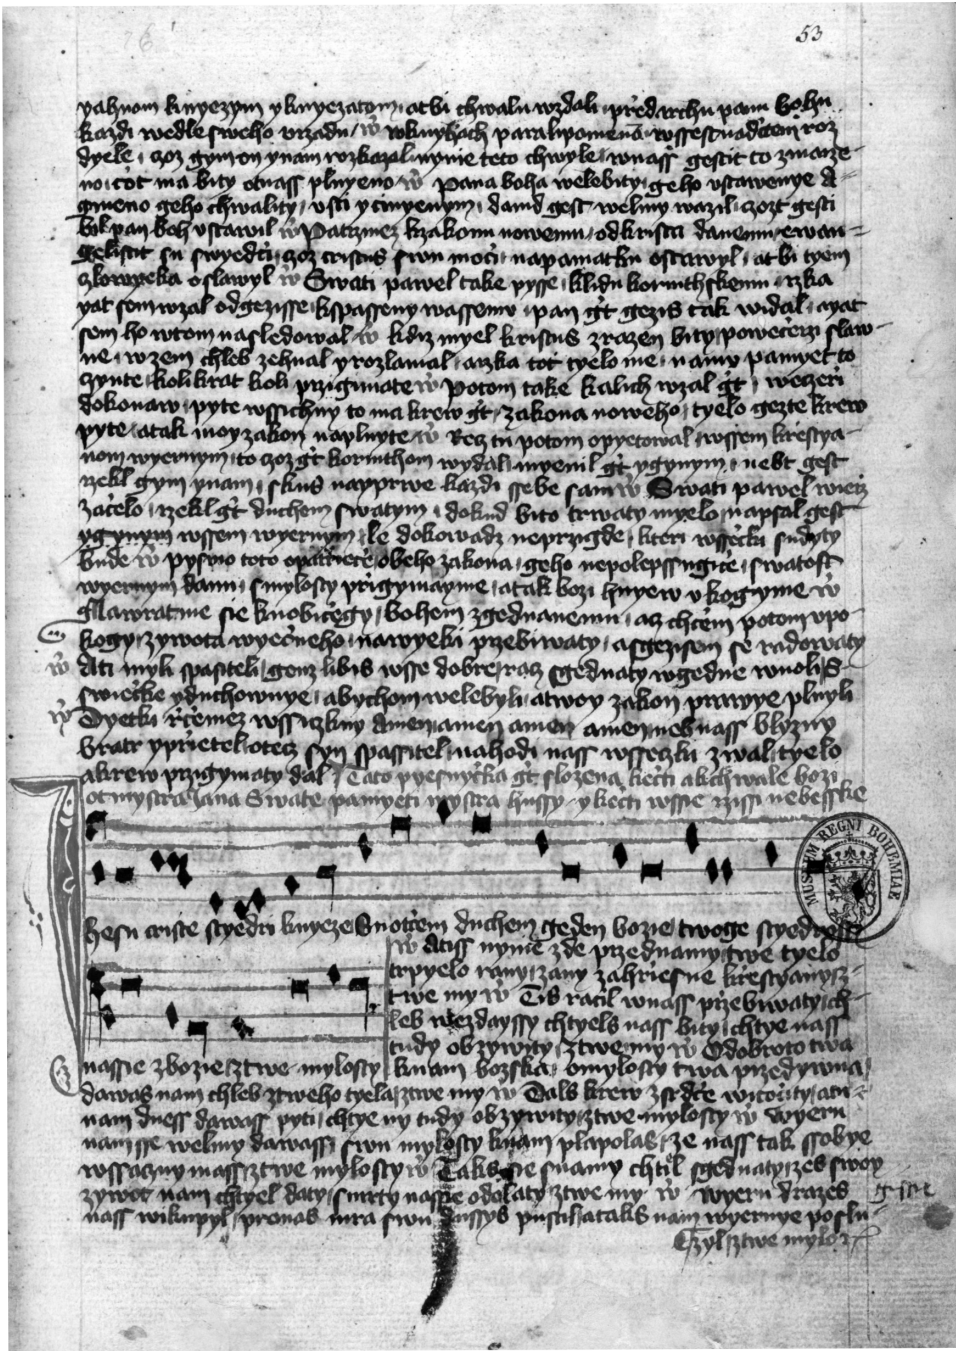 53
yahnom knyezym y knyezatom, at bi chwalu wzdali, pred archu panu bohu
kazdi wedle sweho vrzadu, w knyhach paralypomena, wssest nadctem roz
dyele, czoz gym on ynam rozkazal, nynie teto chwyle, wnass gestit to zmarze-
no, tot ma bity otnass plnyeno Pana boha welebity, geho vstawenye a
gmeno geho chwality, vsti y czinyenym, dawid gest welmy wazil, czozt gesti
byl pan boh vstawil Patrzmez kzakonu nowemu, od krista danemu, ewan-
gelistit su swyedci, czoz cristus swu moci, napamatku ostawyl, at bi tyem
czlowyeka oslawyl Swati pawel take pysse, klidu korinthskemu, rzka
yat sem wzal od gezisse, kspasseny wassemu, pan gt gezis tak widal, ayat
sem ho wtom nasledowal kdiz myel kristus zrazen bity, powecerzi slaw-
ne, wzem chleb zehnal y rozlamal, arzka tot tyelo me, namu pamyet to
czynte, kolikrat koli przigimate Potom take kalich wzal gt, weczeri
dokonaw, pyte wssichny to ma krew gt, zakona noweho, tyelo gezte krew
pyte, atak moy zakon naplnyte Recz tu potom opyetowal, wssem krestya-
nom wyernym, to czoz gt korinthom wydal, myenil gt ygynym, nebt gest
rzekl gym ynam, skus nayprwe kazdi sebe sam Swati pawel wiecz
zacelo, rzekl gt duchem swatym, dokud bito trwaty myelo, napsal gest
ygynym wssem wyernym, le dokowadz neprzigde, kteri wssecku sudyty
bude Pysmo toto opatriece, obeho zakona, geho nepolepssugice, swatost
wyernym danu, smylosty prigymayme, atak bozi hnyew vkogyme
Nawratme sie knobicegy, bohem zgednanemu, acz chcem potom vpo-
kogy, zywota wyecneho, nawyeki przebiwaty, asgezisem se radowaty
Ati myli spasiteli, genz libis wsse dobre, racz sgednaty wgedne wuoli,
swiecke yduchownye, abychom welebyli, atwoy zakon prawye plnyli
Dyetki rcemez wssiczkny Amen, amen amen amen, neb nass blyzny
bratr yprietel, otecz syn spassitel, nahodi nass wsseczki zwal, tyelo
akrew przigymaty dal Tato pyesnycka gt slozena kecti akchwale bozi
ot mystra Jana Swate pamyeti mystra hussy y kecti wssie rzissi nebesske
MUSEUM REGNI BOHEMIAE
hesu criste styedri knyeze Sotcem duchem geden bozie twoge styedrost
Atiss nynie zde przednamy, twe tyelo
trpyelo rany, zany zahriesne krestyany, z
twe my Tis racil wnass przebiwaty, ch-
leb wezdayssy chtyels nass bity, chtye nass
tudy obzywity, ztwe my O dobroto twa
nassie zbozie, ztwe mylosty knam bozska, omylosty twa przedywna,
dawas nam chleb ztweho tyela, ztwe my Dals krew zsrdce witociti, atu
nam dness dawass pyti, chtye ny tudy obzywity, ztwe mylosty wyeru
nam sse welmy dawass, swu mylosty knam plapolas, ze nass tak sobye
wssaczny mass, ztwe mylosty Taks sie snamy chtiel sgednaty, zes swoy
zywot nam chtyel daty, smrty nassie odolaty, ztwe my wyeru drazes
nass wikupyl, pronas mra swu dussys pustil, ataks nam wyernye poslu-
czyl, ztwe mylo